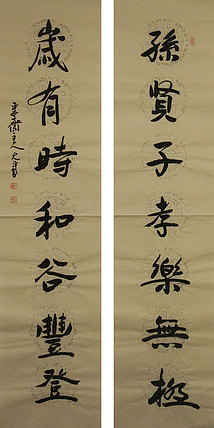 孫賢子孝樂無極
歲有時和谷豐登